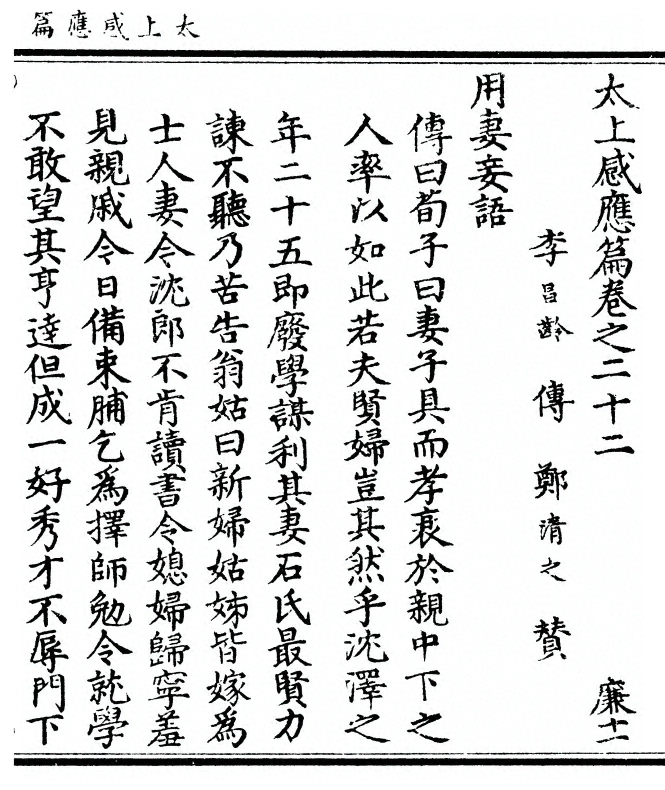 太上感應篇
太上感應篇卷之二十二 廉十一
李昌齡 傳 鄭清之 贊
用妻妾語
傳曰荀子曰妻子具而孝衰於親中下之
人率以如此若夫賢婦豈其然乎沈澤之
年二十五即廢學謀利其妻石氏最賢力
諫不聽乃苦告翁姑曰新婦姑姊皆嫁為
士人妻令沈郎不肯讀書令媳婦歸寧羞
見親戚令日備束脯乞為擇師勉令就學
不敢望其亨達但成一好秀才不辱門下